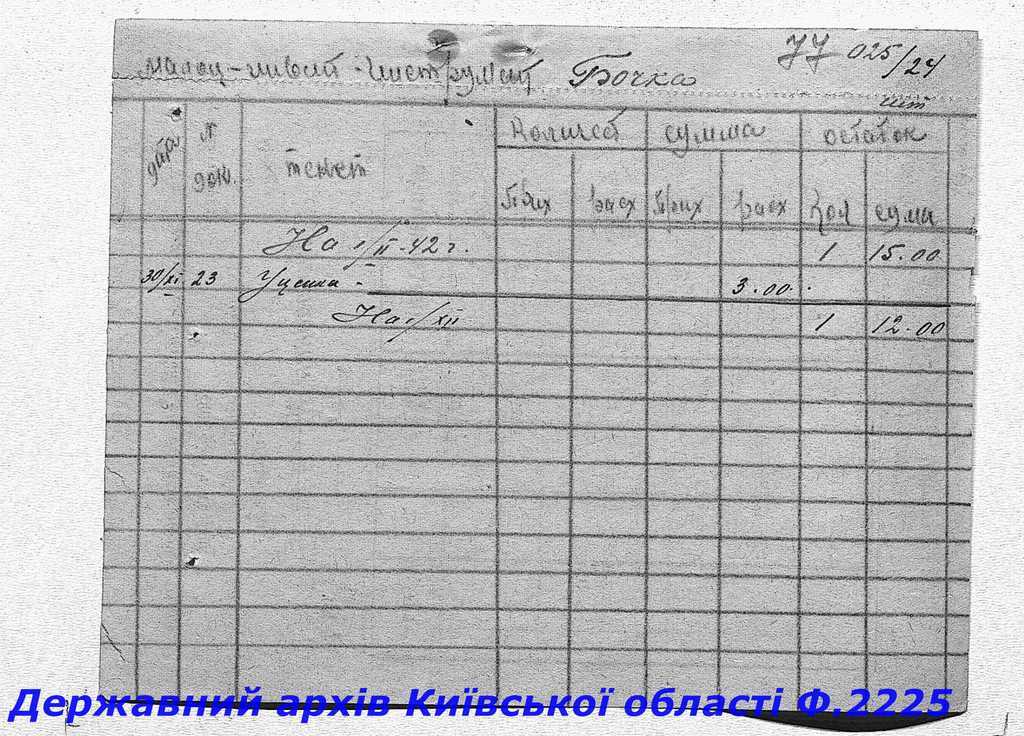 Малоц-инвент-Инструмент Бочка 77 025/24
шт
дата N док. текст Количест сумма остаток
Прих расх Прих расх Кол сума
На 1/II-42 г. 1 15.00
30/XI 23 Уценка - 3.00
На 1/XII 1 12.00
Державний архів Київської області Ф.2225